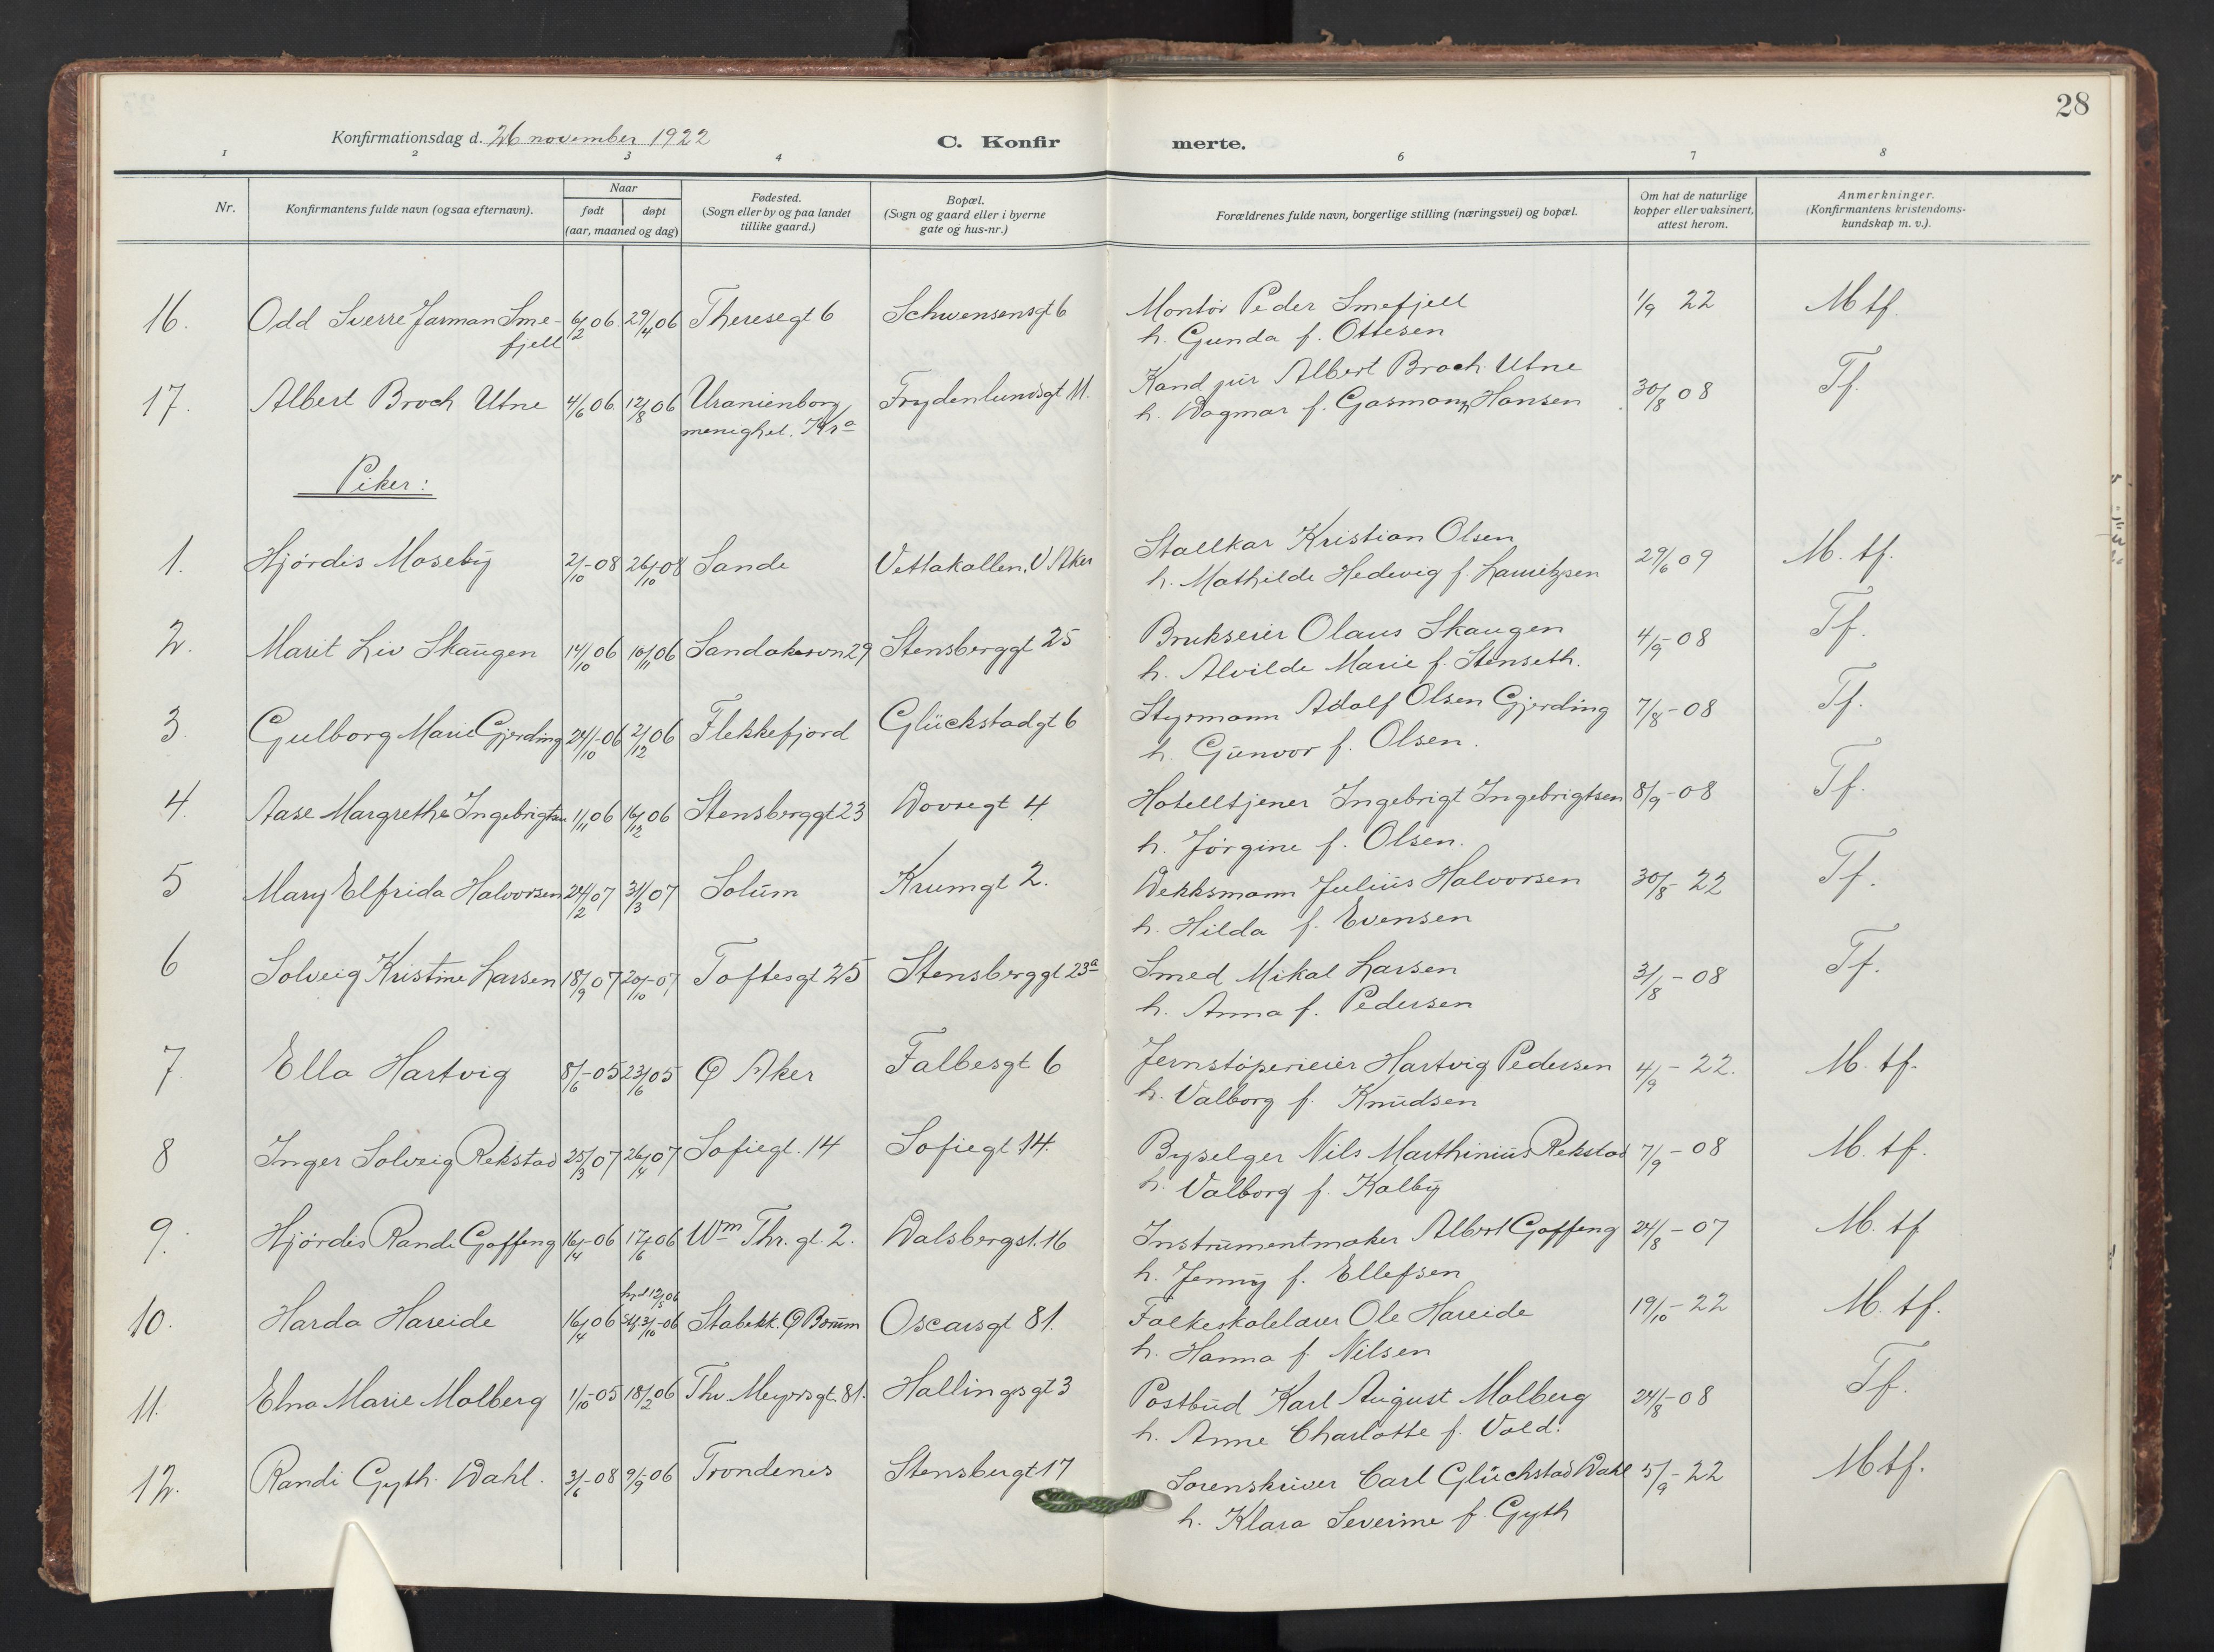 28
Konfirmationsdag d. 26 november 1922
C. Konfirmerte.
1 2 3 4 6 7 8
Nr.
Konfirmantens fulde navn (ogsaa efternavn).
Naar
født døpt
(aar, maaned og dag)
Fødested.
(Sogn eller by og paa landet
tillike gaard.)
Bopæl.
(Sogn og gaard eller i byerne
gate og hus-nr.)
Forældrenes fulde navn, borgerlige stilling (næringsvei) og bopæl.
Om hat de naturlige
kopper eller vaksinert,
attest herom.
Anmerkninger.
(Konfirmantens kristendoms-
kundskap m. v.).
16. Odd Sverre Jarman Sme- 6/2 06 29/4 06 Theresegt 6 Schwensensgt 6 Montör Peder Smefjell 1/9 22 Mtf.
fjell h. Gunda f. Ottesen
17. Albert Broch Utne 4/6 06 12/8 06 Uranienborg Frydenlundsgt 11. Kand jur Albert Broch Utne 30/8 08 Tf.
menighet. Kra h. Dagmar f. Hansen
Piker:
1. Hjördis Moseby 2/10-08 26/10-08 Sande Vettakollen, V Aker Stallkar Kristian Olsen 29/6 09 M. tf.
h. Mathilde Hedevig f. Lauritzsen
2. Marit Liv Skaugen 14/10 06 10/11 06 Sandakervn 29 Stensberggt 25 Brukseier Olaus Skaugen 4/9-08 Tf.
h. Alvilde Marie f. Stenseth.
3 Gulborg Marie Gjerding 24/10-06 2/12 06 Flekkefjord Glückstadgt 6 Styrmann Adolf Olsen Gjerding 7/8-08 Tf.
h. Gunvor f. Olsen.
4. Aase Margrethe Ingebrigtsen 1/11 06 16/12 06 Stensberggt 23 Dovregt 4 Hotelltjener Ingebrigt Ingebrigtsen 8/9-08 Tf.
h. Jörgine f. Olsen.
5 Mary Elfrida Halvorsen 24/2 07 31/3 07 Solum Krumgt 2. Vekksmann Julius Halvorsen 30/8-22 Tf.
h. Hilda f. Evensen
6 Solveig Kristine Larsen 18/9 07 20/10-07 Toftesgt 25 Stensberggt 23a Smed Mikal Larsen 31/8-08 Tf.
h. Anna f. Pedersen
7 Ella Hartvig 8/6-05 23/6 05 Ø Aker Falbesgt 6 Jernstöperieier Hartvig Pedersen 4/9-22. M. tf.
h. Valborg f. Knudsen
8 Inger Solveig Rekstad 25/3 07 26/4 07 Sofiegt. 14 Sofiegt 14. Byselger Nils Marthinius Rekstad 7/9-08 M. tf.
h. Valborg f. Kalby
9. Hjördis Randi Goffeng 16/4-06 17/6-06 Wm Thr. gt. 2. Dalsbergst. 16 Instrumentmaker Albert Goffeng 24/8-07 M. tf
h. Jenny f. Ellefsen
hjd 12/5 06
10. Harda Hareide 16/4 06 stf. 31/10-06 Stabekk. Ø Bærum Oscarsgt 81. Folkeskolelærer Ole Hareide 19/10-22 M. tf.
h. Hanna f. Nilsen
11. Elna Marie Molberg 1/10-05 18/2 06 Thv. Meyersgt. 81. Hallingsgt 3 Postbud Karl August Molberg 24/8-08 Tf.
h. Anne Charlotte f. Vold.
12. Randi Gyth Dahl. 3/6-08 9/9 06 Trondenes Stensbergt 17 Sorenskriver Carl Glückstad Dahl 5/9-22 Mtf.
h. Klara Severine f. Gyth